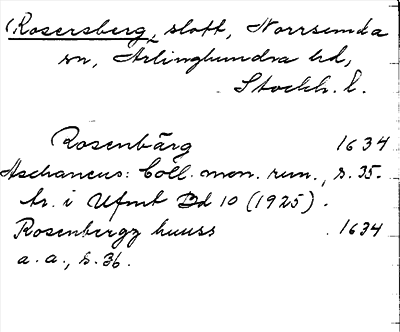 (Rosersberg, slott, Norrsunda
sn, Ärlinghundra hd,
Stockh. l.
Rosenbärg 1634
Aschaneus: Coll. mon. run., s. 35.
tr. i Ufmt Bd 10 (1925).
Rosenbergz huuss 1634
a. a., s. 36.